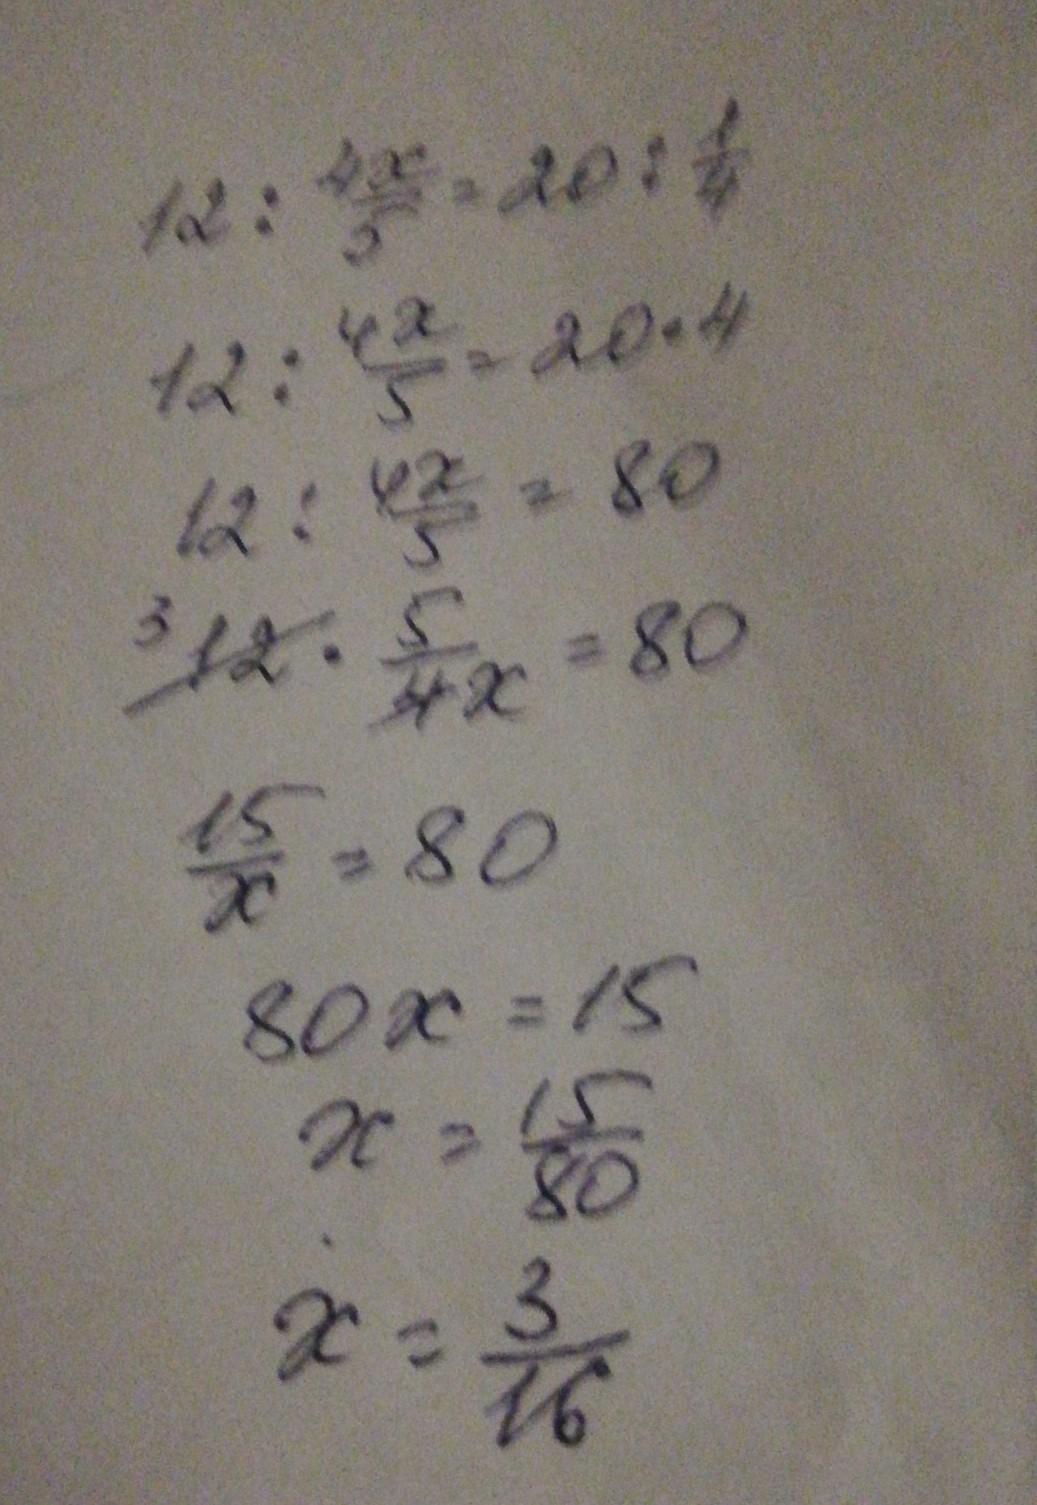 12 : 4x/5 = 20 : 1/4
12 : 4x/5 = 20 · 4
12 : 4x/5 = 80
3 12 · 5/4x = 80
15/x = 80
80x = 15
x = 15/80
x = 3/16